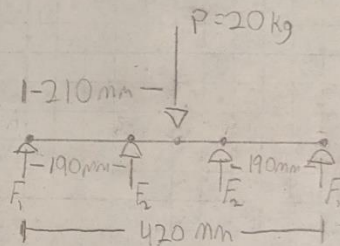 P=20kg
210mm
190mm
190mm
F₁
F₂
F₂
F₁
420mm